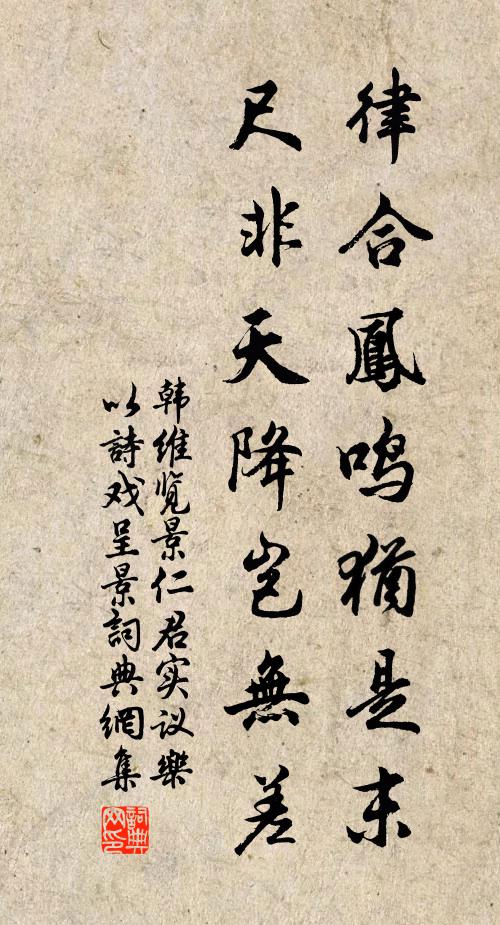 律合鳳鸣猶是末
尺非天降岂無差
韩維览景仁君实议樂
以詩戏呈景詞典網集
詞典
网印